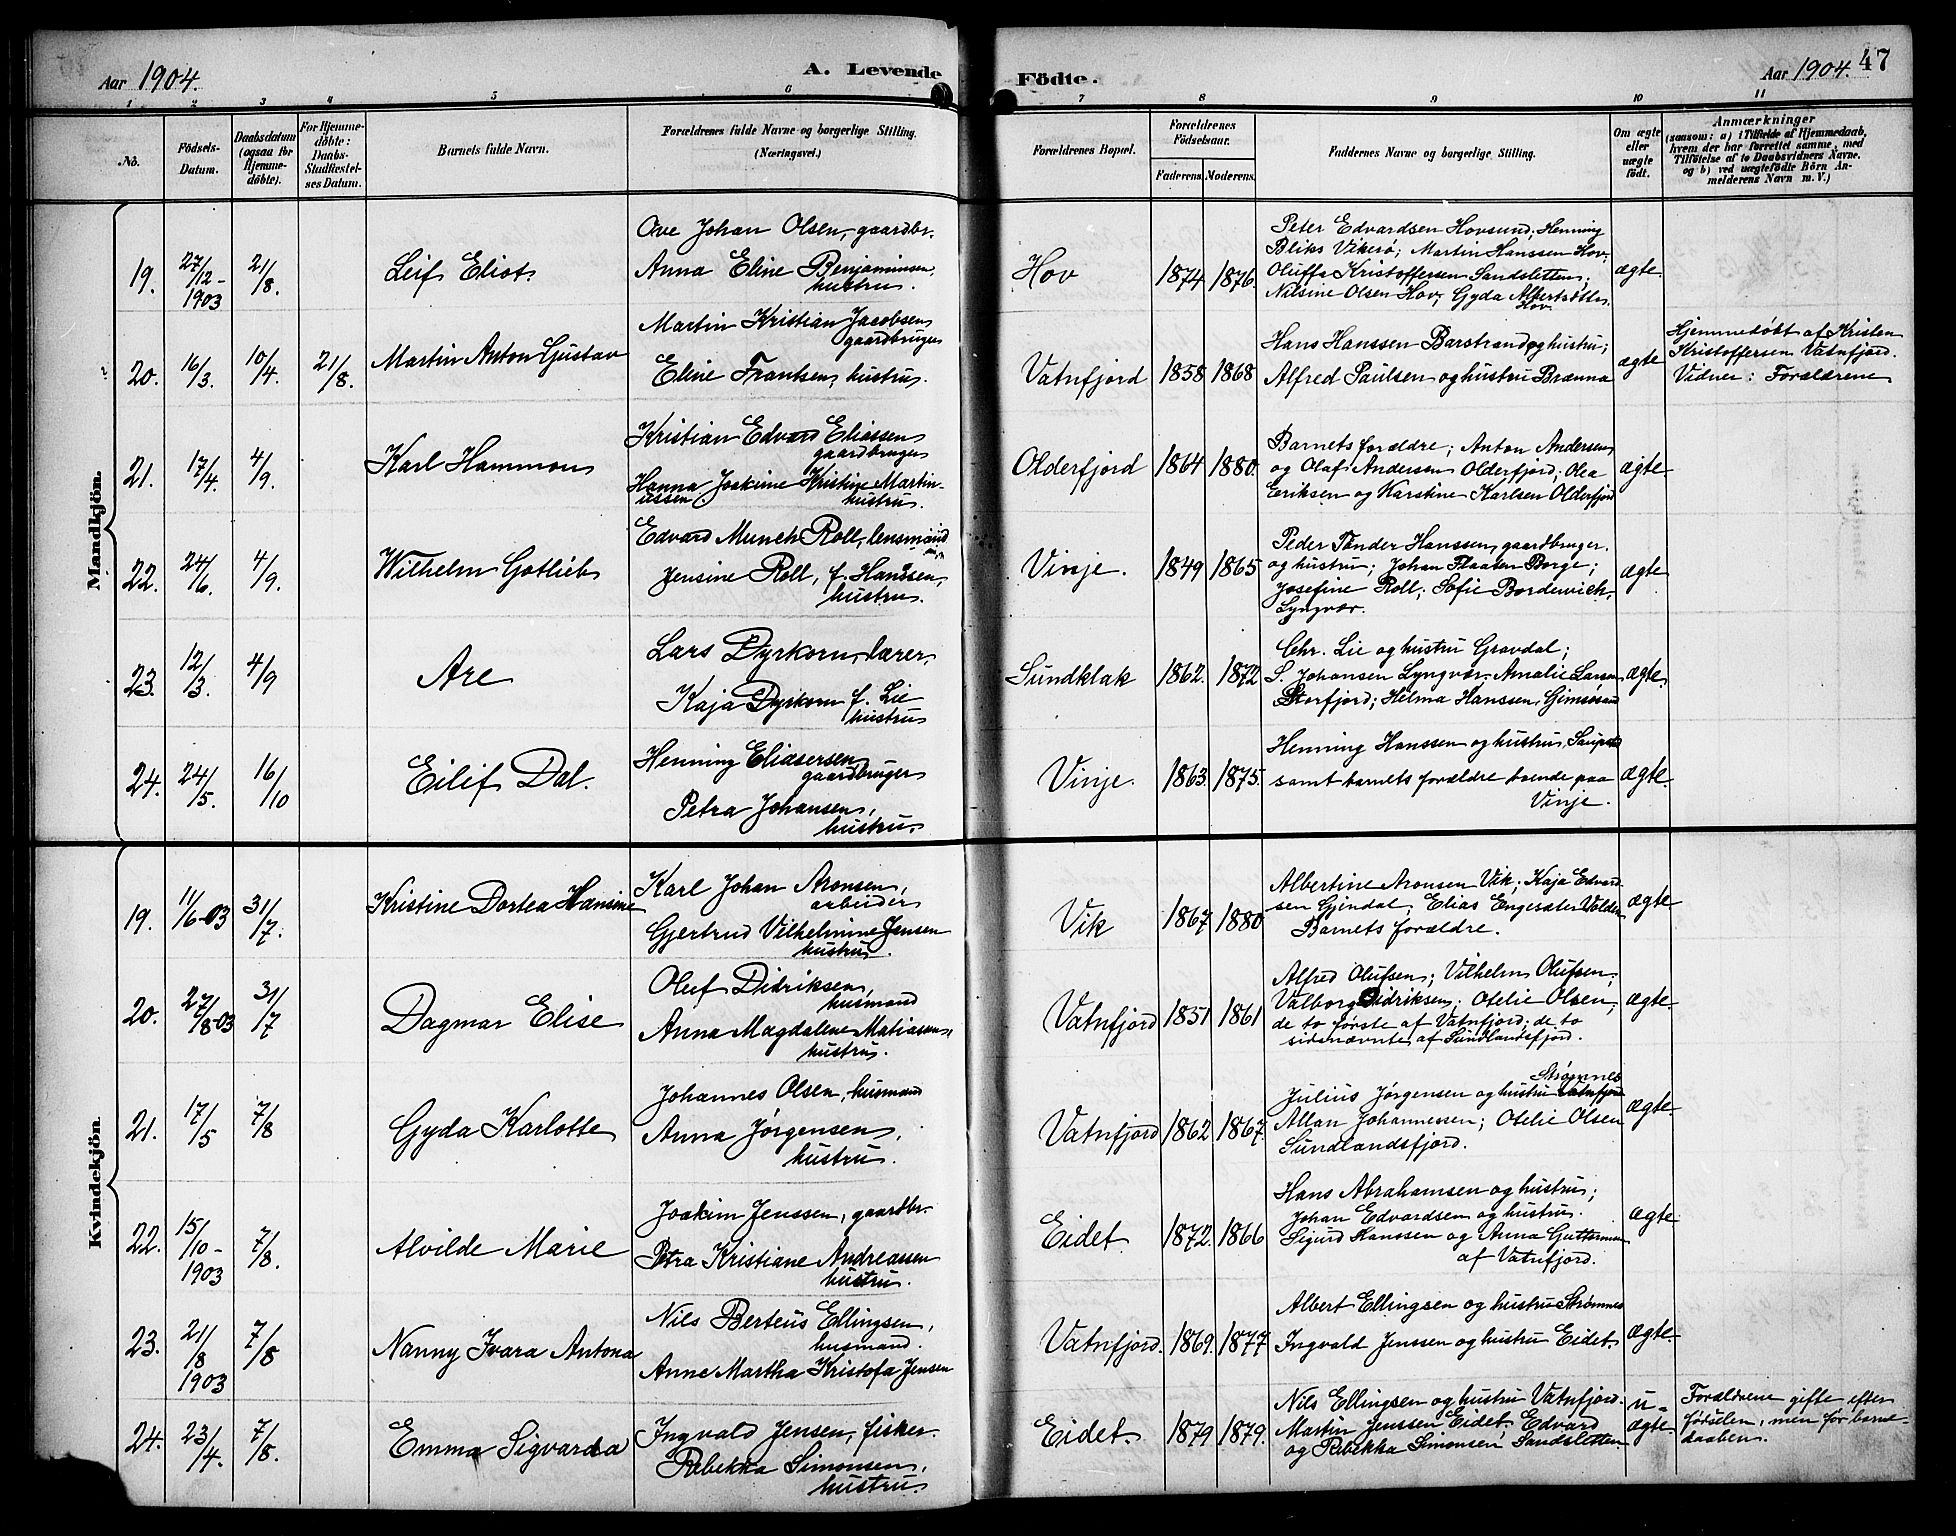 Aar 1904. A. Levende Födte. Aar 1904. 47
1 2 3 4 5 6 7 8 9 10 11
No.
Födsels-Datum.
Daabsdatum (ogsaa for Hjemme-döbte).
For Hjemme-döbte: Daabs-Stadfæstel-ses Datum.
Barnets fulde Navn.
Forældrenes fulde Navne og borgerlige Stilling.
(Næringsvei.)
Forældrenes Bopæl.
Forældrenes Födselsaar.
Faderens. Moderens.
Faddernes Navne og borgerlige Stilling.
Om ægte eller uægte födt.
Anmærkninger
(saasom: a) i Tilfælde af Hjemmedaab,
hvem der har forrettet samme, med
Tilföielse af to Daabsvidners Navne.
og b) ved uægtefödte Börn An-
melderens Navn m. V.)
Mandkjön.
19. 27/12-1903 21/8. Leif Eliot.
Ove Johan Olsen, gaardbr.
Anna Eline Benjaminsen,
hustru.
Hov 1874 1876.
Peter Edvardsen Hovsund; Henning
Bliks Vikerö; Martin Hanssen Hov;
Oluffa Kristoffersen Sandsletten;
Nilsine Olsen Hov, Gyda
Hov.
ægte.
20. 16/3. 10/4. 21/8. Martin Anton Gustav
Martin Kristian Jacobsen
gaardbruger
Eline Frantsen, hustru.
Vatnfjord 1858 1868
Hans Hanssen Barstrand og hustru;
Alfred Paulsen og hustru Brænna
ægte
Hjemmedøbt af Kristen
Kristoffersen Vatnfjord.
Vidner: Forældrene
21. 17/4. 4/9. Karl Hammon
Kristian Edvard Eliassen
gaardbruger
Hanna Joakime Kristine Martin-
ussen hustru.
Olderfjord 1864 1880.
Barnets forældre; Anton Andersen
og Olaf Andersen Olderfjord; Olea
Eriksen og Karstine Karlsen Olderfjord
ægte
22. 24/6. 4/9. Wilhelm Gotlieb
Edvard Munch Roll, lensmand
Jensine Roll, f. Hanssen,
hustru.
Vinje. 1849 1865
Peder Tønder Hanssen, gaardbruger.
og hustru; Johan Flaaten Borge;
Josefine Roll; Sofie Borderwich,
Lyngvær.
ægte
23. 12/3. 4/9 Are
Lars Dyrkorn, lærer,
Kaja Dyrkorn f. Lie
hustru
Sundklak 1862. 1872
Chr. Lie og hustru Gravdal;
S. Johansen Lyngvær. Amalie Larsen
Storfjord; Helma Hanssen, Gimsøsand
ægte.
24. 24/5. 16/10 Eilif Dal.
Henning Eliasersen
gaardbruger
Petra Johansen,
hustru.
Vinje. 1863. 1875.
Henning Hanssen og hustru,
samt barnets forældre boende paa
Vinje.
ægte.
Kvindekjön.
19. 11/6-03 31/7. Kristine Dortea Hansine
Karl Johan Aronsen,
arbeider
Gjertrud Vilhelmine Jensen
hustru.
Vik 1867 1880
Albertine Aronsen Vik; Kaja Edvard-
sen Gjendal; Elias Engesæter Volden
Barnets forældre.
ægte.
20. 27/8-03 31/7 Dagmar Elise
Oluf Didriksen,
husmand
Anna Magdalene Matiassen,
hustru.
Vatnfjord 1851 1861
Alfred Olufsen; Vilhelm Olufsen;
Valborg Didriksen; Otelie Olsen,
de to første af Vatnfjord; de to
sidsnævnte af Sundlandsfjord.
ægte.
21. 17/5 7/8 Gyda Karlotte
Johannes Olsen, husmand
Anna Jørgensen,
hustru.
Vatnfjord 1862 1867.
Strømnes
Julius Jørgensen og hustru Vatnfjord
Allan Johannessen; Otelie Olsen
Sundlandsfjord.
ægte.
22. 15/10-1903 7/8. Alvilde Marie
Joakim Jenssen, gaardbr.
Petra Kristiane Andreassen
hustru.
Eidet. 1872. 1866
Hans Abrahamsen og hustru;
Johan Edvardsen og hustru.
Sigurd Hanssen og Anna Guttormsen
af Vatnfjord.
ægte
23. 21/8 1903 7/8 Nanny Ivara Antona
Nils Berteus Ellingsen,
husmand.
Anne Martha Kristofa Jensen
Vatnfjord. 1869. 1877
Albert Ellingsen og hustru Strømnes
Ingvald Jenssen og hustru Eidet.
ægte.
24. 23/4. 7/8. Emma Sigvarda
Ingvald Jensen, fisker.
Rebekka Simonsen,
hustru.
Eidet. 1879 1879.
Nils Ellingsen og hustru Vatnfjord.
Martin Jenssen Eidet, Edvard
og Rebekka Simonsen Sandsletten
u-
ægte
Forældrene gifte efter
fødselen, men før barne-
daaben.